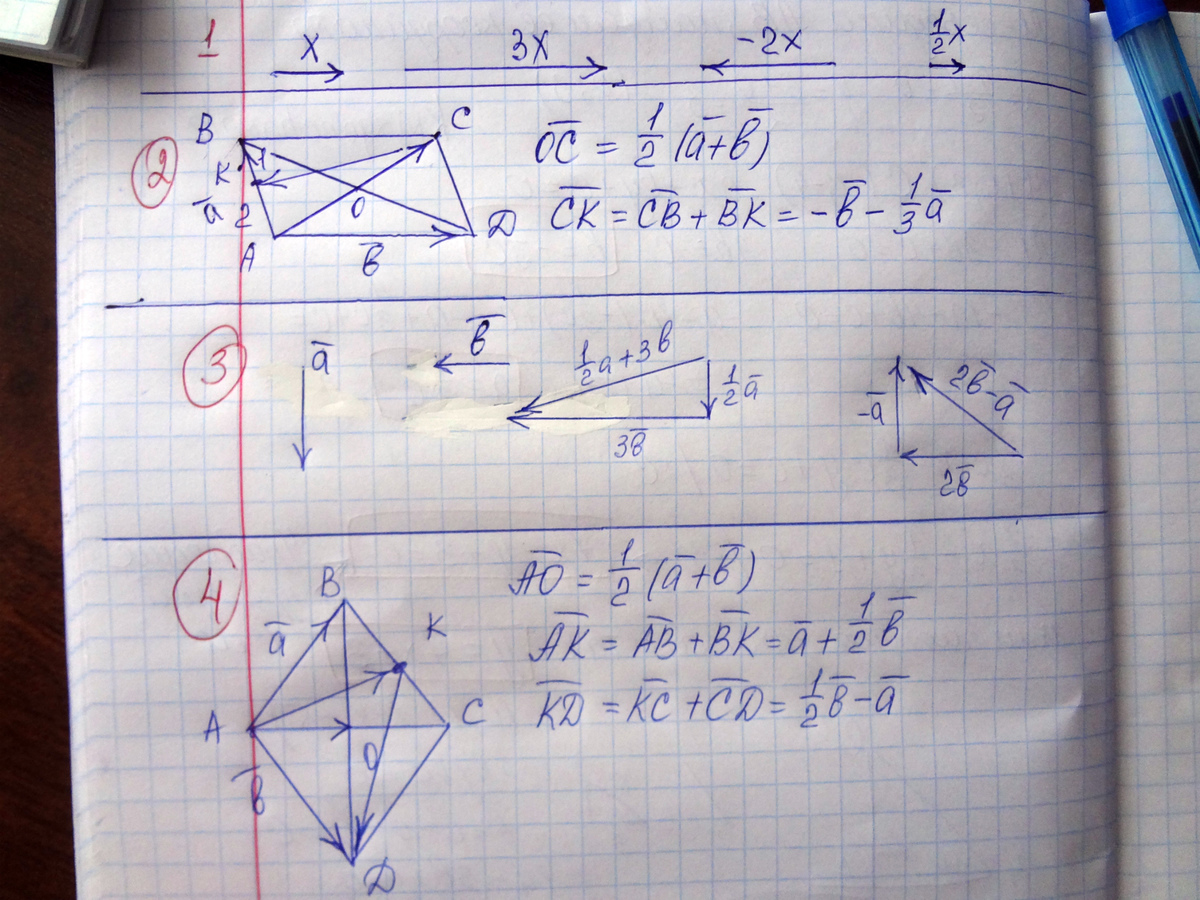 1
x 3x -2x ½x
2
B C
K 1
a̅ 2 O
A b̅ D
O̅C̅ = ½(a̅+b̅)
C̅K̅ = C̅B̅ + B̅K̅ = -b̅ - ⅓a̅
3
a̅ b̅ ½a+3b ½a̅ 3b̅ -a̅ 2b̅-a̅ 2b̅
4
B
a̅ K
A C
O
b̅
D
A̅O̅ = ½(a̅+b̅)
A̅K̅ = A̅B̅ + B̅K̅ = a̅ + ½b̅
K̅D̅ = K̅C̅ + C̅D̅ = ½b̅ - a̅